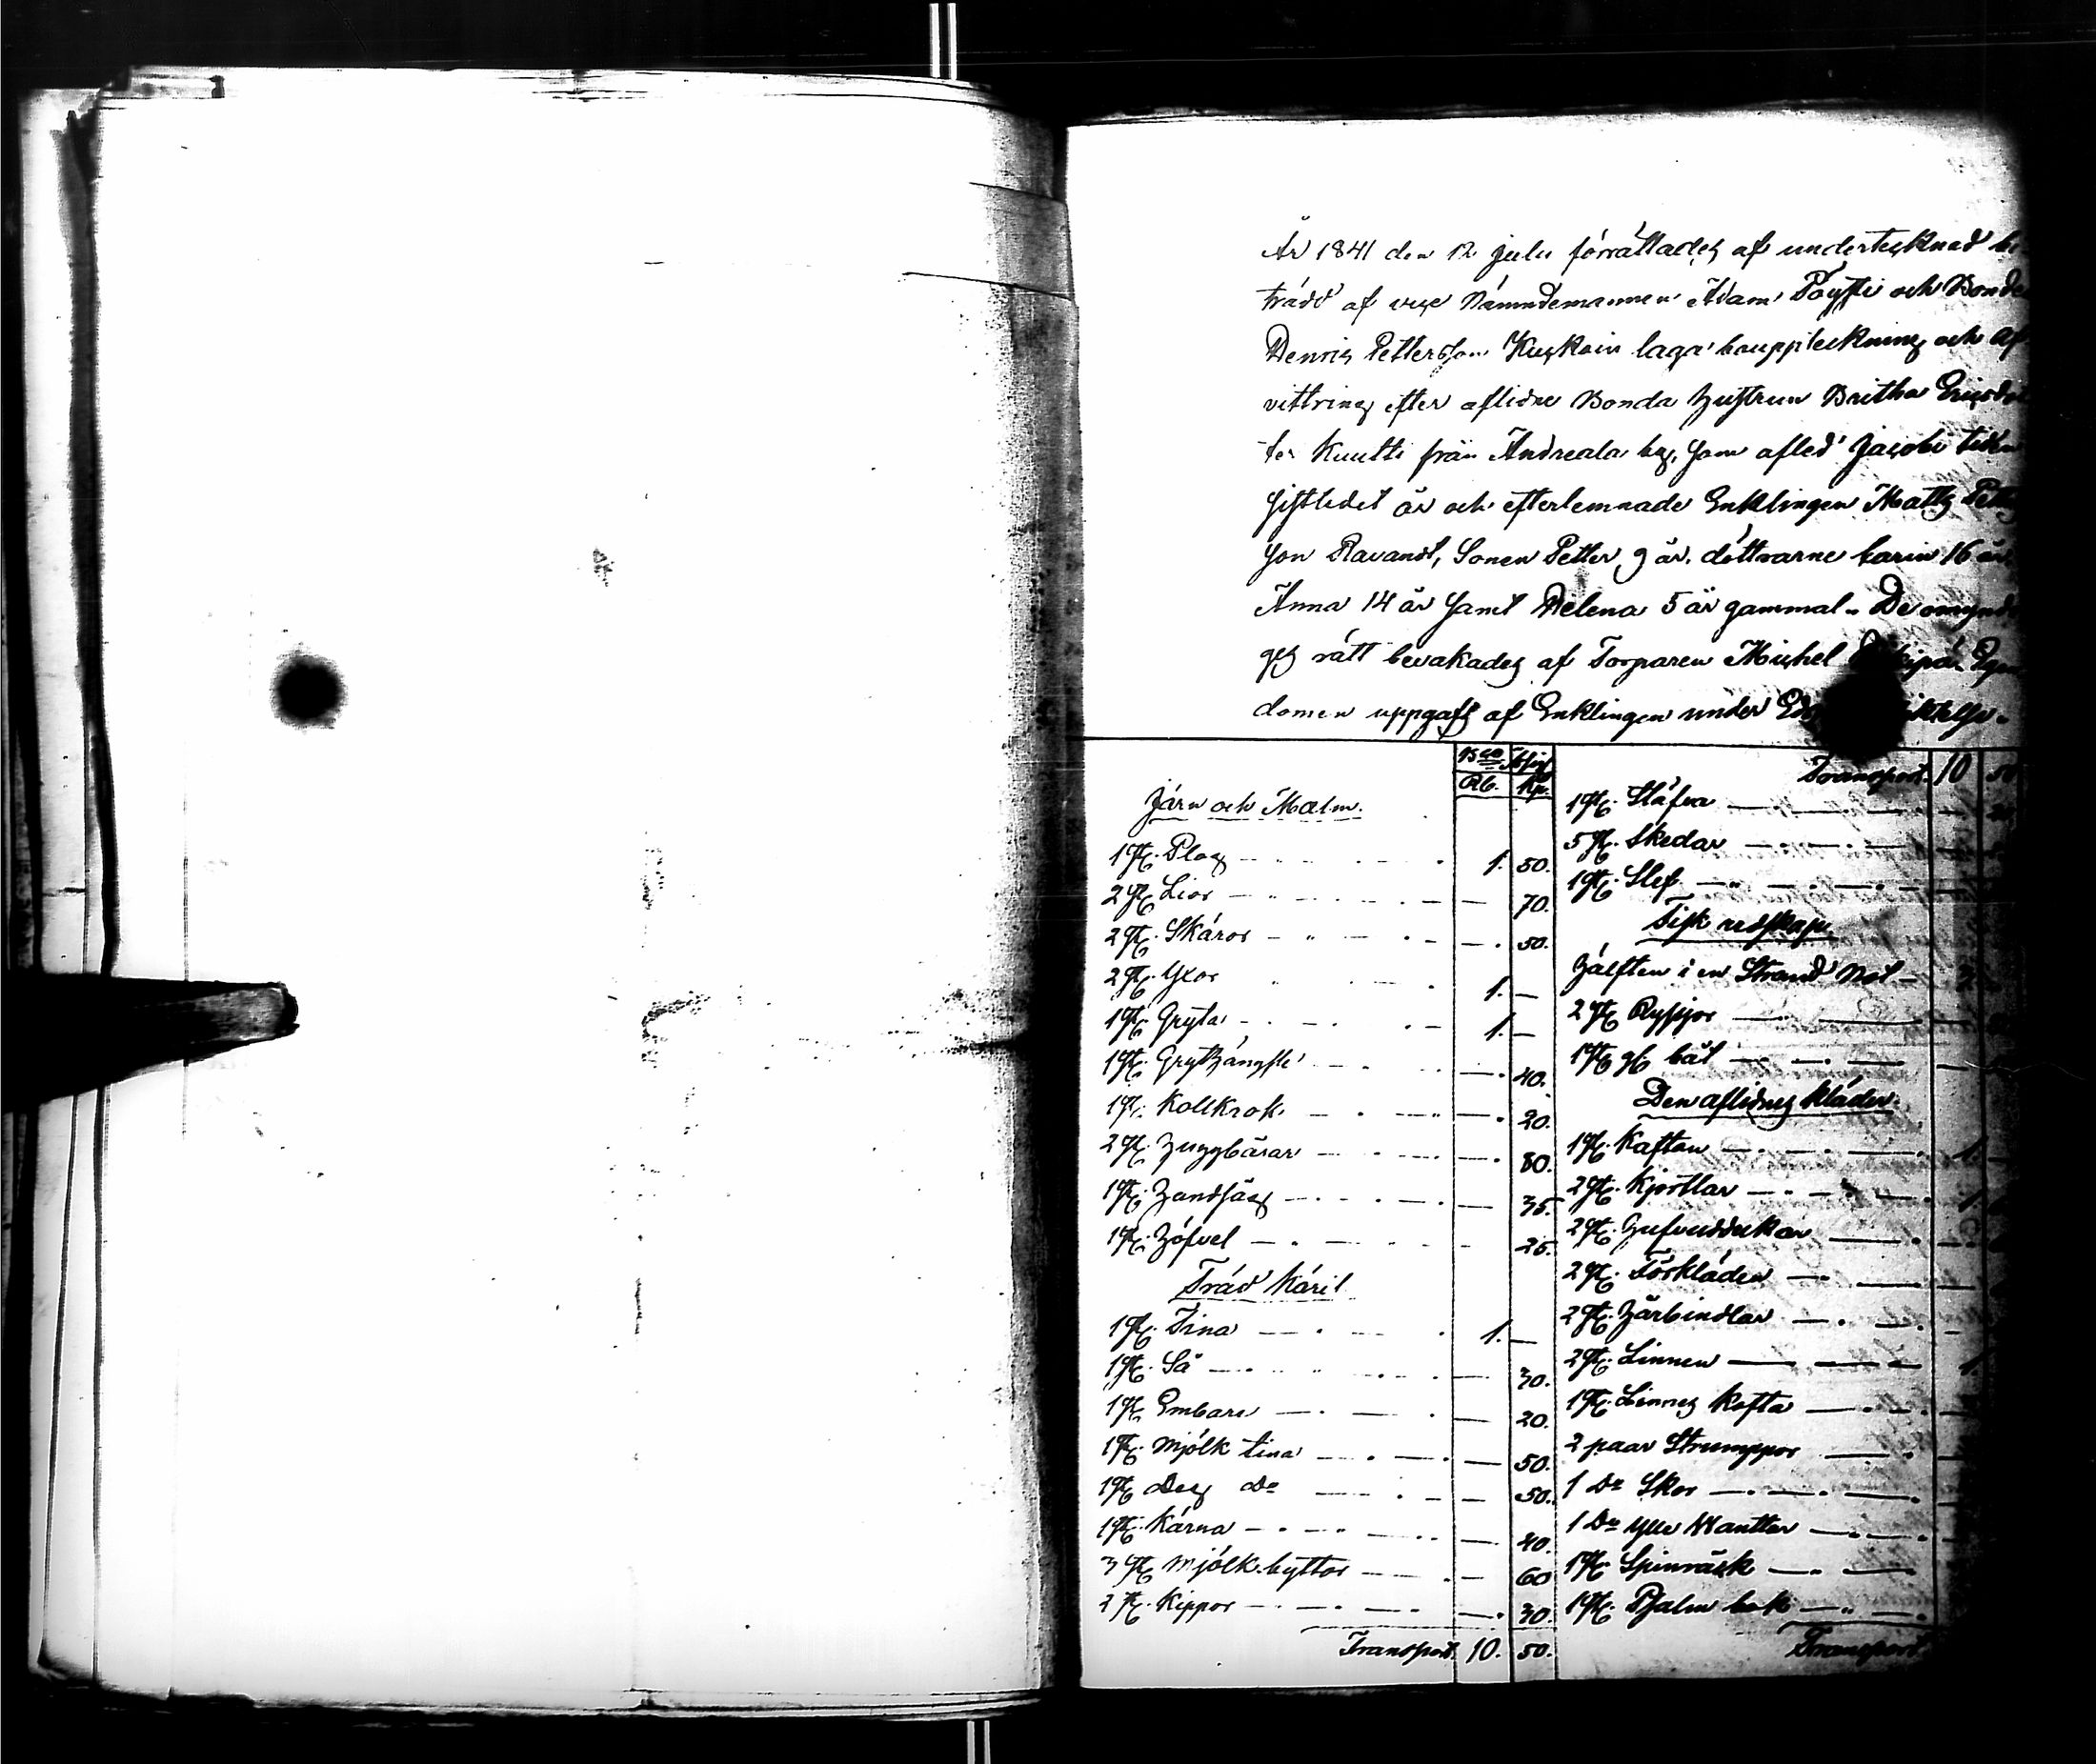 År 1841 den 12 Julii förrättades af undertecknad be
trädd af vice Nämndemannen Adam Pöysti och Bonde
Henric Pettersson Kuskoin laga bouppteckning och af
vittring efter aflidne Bonda hustrun Britha Ericsdot
ter Kuutti från Andreala by, som afled Jacobi tiden
sistledet år och efterlemnade Enklingen Matts Petters
son Ravandt, Sonen Petter 9 år, döttrarne Carin 16 år,
Anna 14 år samt Helena 5 år gammal. De omyndi
ges rätt bevakades af Torparen Michel Egen
domen uppgafs af Enklingen under Eds
Bco Assig
Rb. Kp.
Järn och Malm.
1 St. Plog 1. 50.
2 St. Lior — 70.
2 St. Skäror — 50.
2 St. Yxor 1. —
1 St. Gryta 1. —
1 St. Grythängsle — 40.
1 St. Kollkrok — 20.
2 St. Huggbärar — 80.
1 St. Handsåg — 35.
1 St. Höfvel 25.
Träd Käril
1 St. Tina 1. —
1 St. Så — 30.
1 St. Embare — 20.
1 St. Mjölk tina — 50.
1 St. Deg Do — 50.
1 St. Kärna — 40.
3 St. Mjölk byttor — 60
2 St. Kippor — 30.
Transport 10. 50.
Transport 10 50
1 St. Stäfva — 20
5 St. Skedar —
1 St. Slef —
Fisk redskap.
Hälften i en Strand Not 3.
2 St. Ryssjor —
1 St. gl. båt —
Den aflidnes kläder
1 St. Kaftan 1. —
2 St. Kjortlar 1
2 St. Hufvuddukar —
2 St. Förkläden —
2 St. Hårbindlar —
2 St. Linnen 1.
1 St. Linnes Kofta —
2 paar Strumppor —
1 Do Skor —
1 Do Ylle Wanttar —
1 St. Spinråck
1 St. Psalm bok
Transport